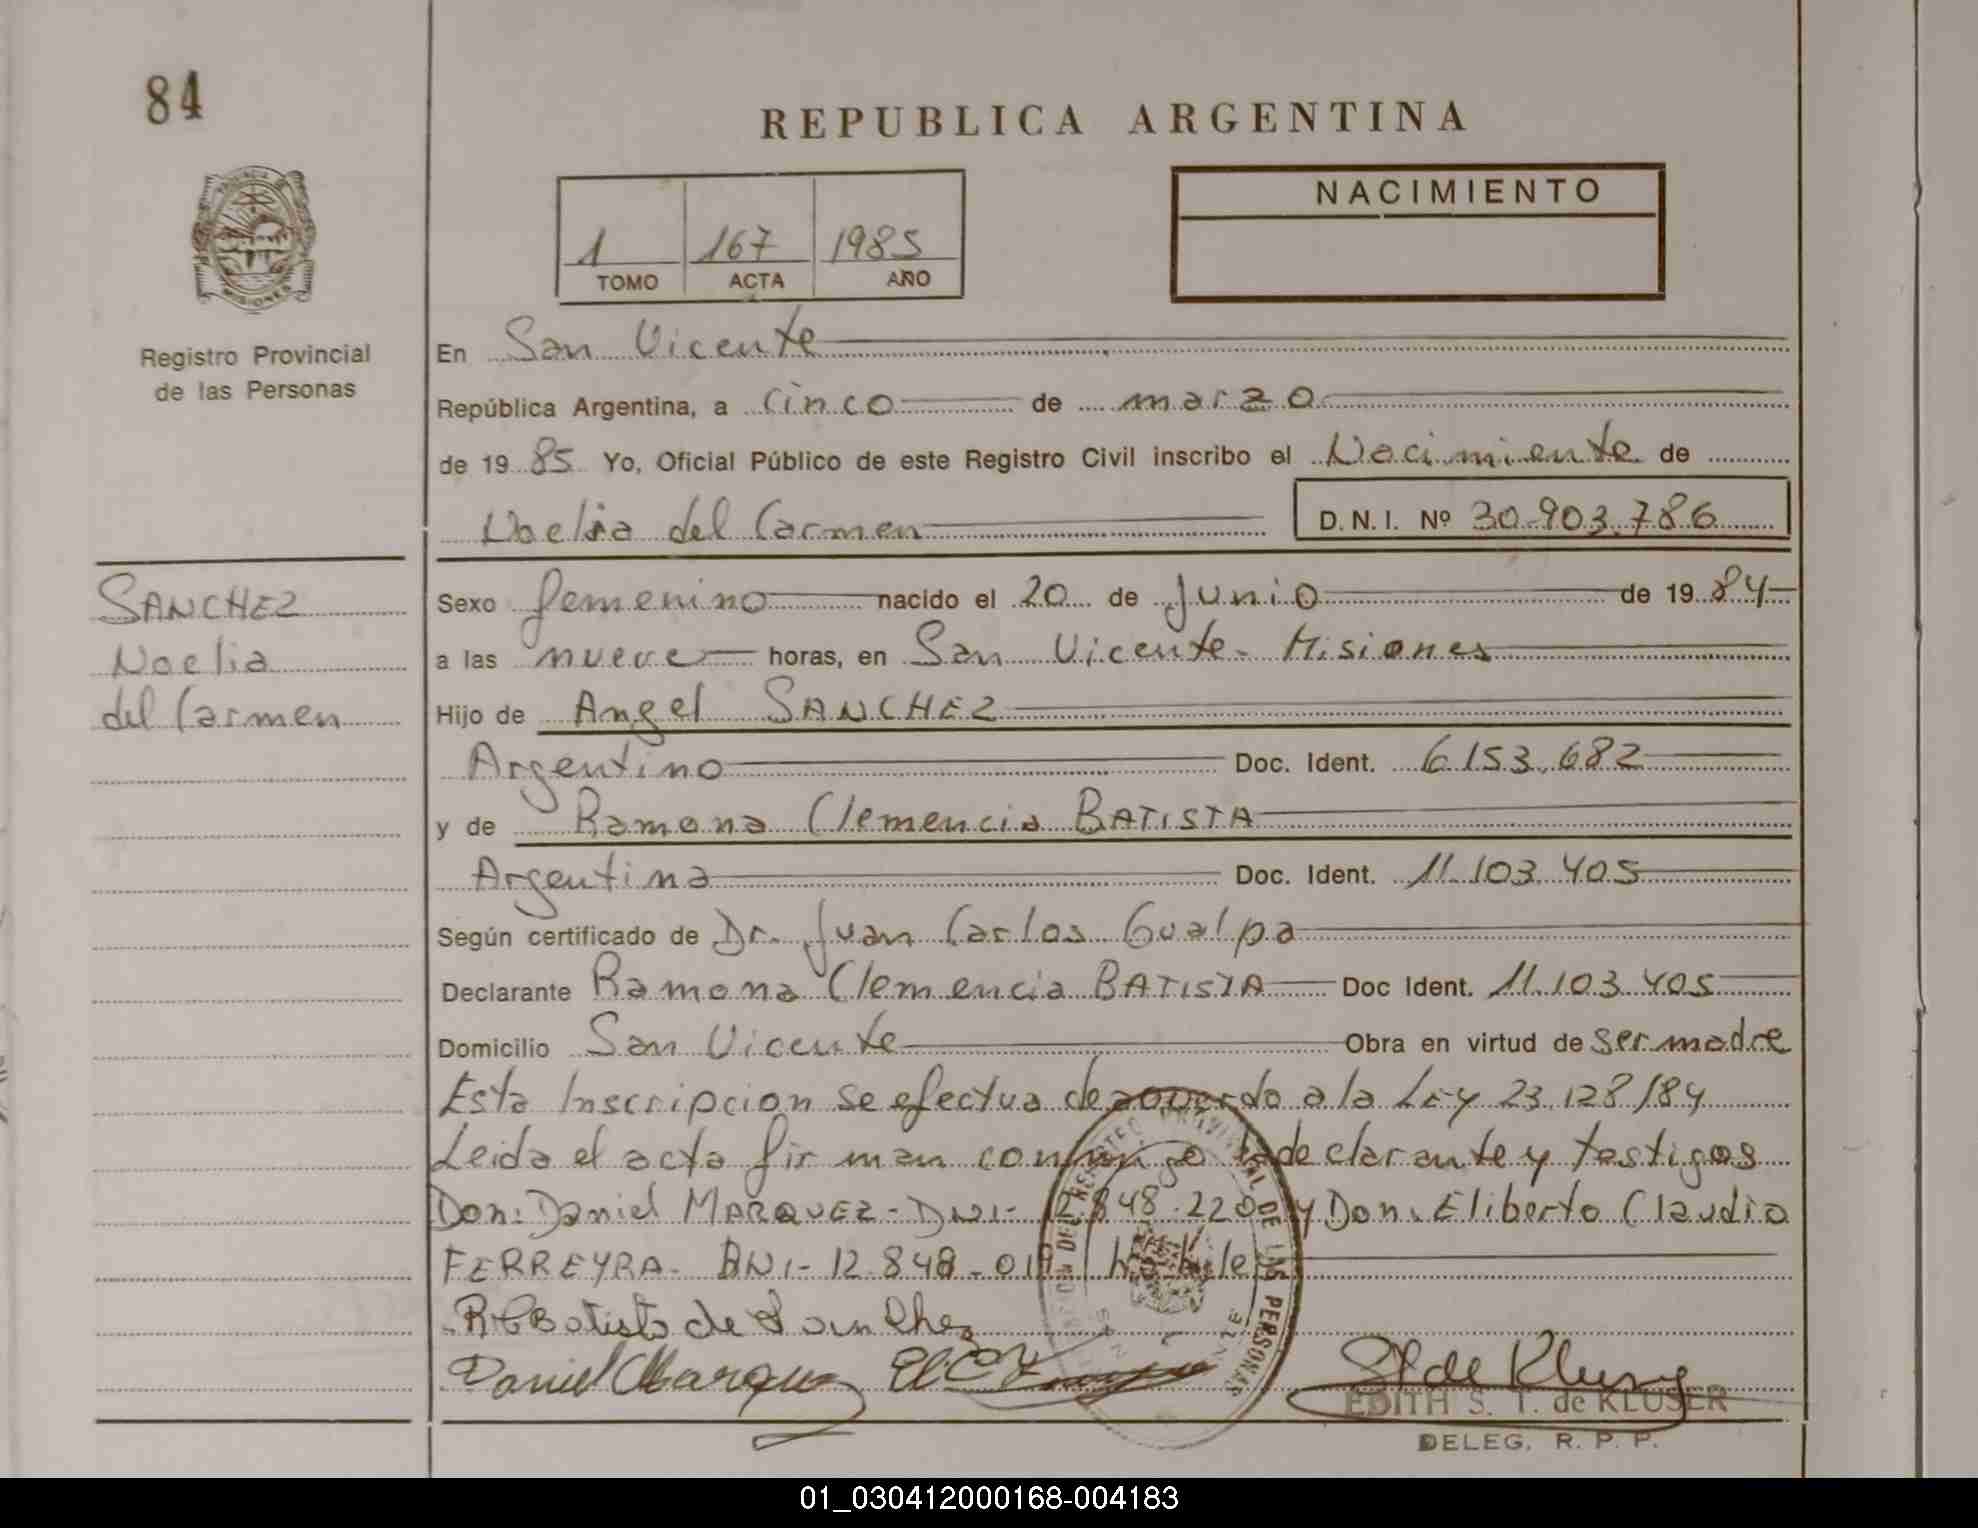 84
REPUBLICA ARGENTINA
PROVINCIA DE
MISIONES
Registro Provincial
de las Personas
1 167 1985
TOMO ACTA AÑO
NACIMIENTO
En San Vicente
República Argentina, a cinco de marzo
de 19 85 Yo, Oficial Público de este Registro Civil inscribo el Nacimiento de
Noelia del Carmen D.N.I. Nº 30.903.786
SANCHEZ
Noelia
del Carmen
Sexo femenino nacido el 20 de Junio de 19 84
a las nueve horas, en San Vicente - Misiones
Hijo de Angel SANCHEZ
Argentino Doc. Ident. 6.153.682
y de Ramona Clemencia BATISTA
Argentina Doc. Ident. 11.103.405
Según certificado de Dr. Juan Carlos Gualpa
Declarante Ramona Clemencia BATISTA Doc Ident. 11.103.405
Domicilio San Vicente Obra en virtud de ser madre
Esta Inscripcion se efectua de acuerdo a la LEY 23.128/84
Leida el acta firman conmigo la declarante y testigos
Don: Daniel MARQUEZ - DNI - 848.220 y Don. Eliberto Claudio
FERREYRA - DNI - 12.848.019 habiles
R C Batista de Sanchez
Daniel Marquez
EDITH S. T. de KLUSER
DELEG. R. P. P.
01_030412000168-004183